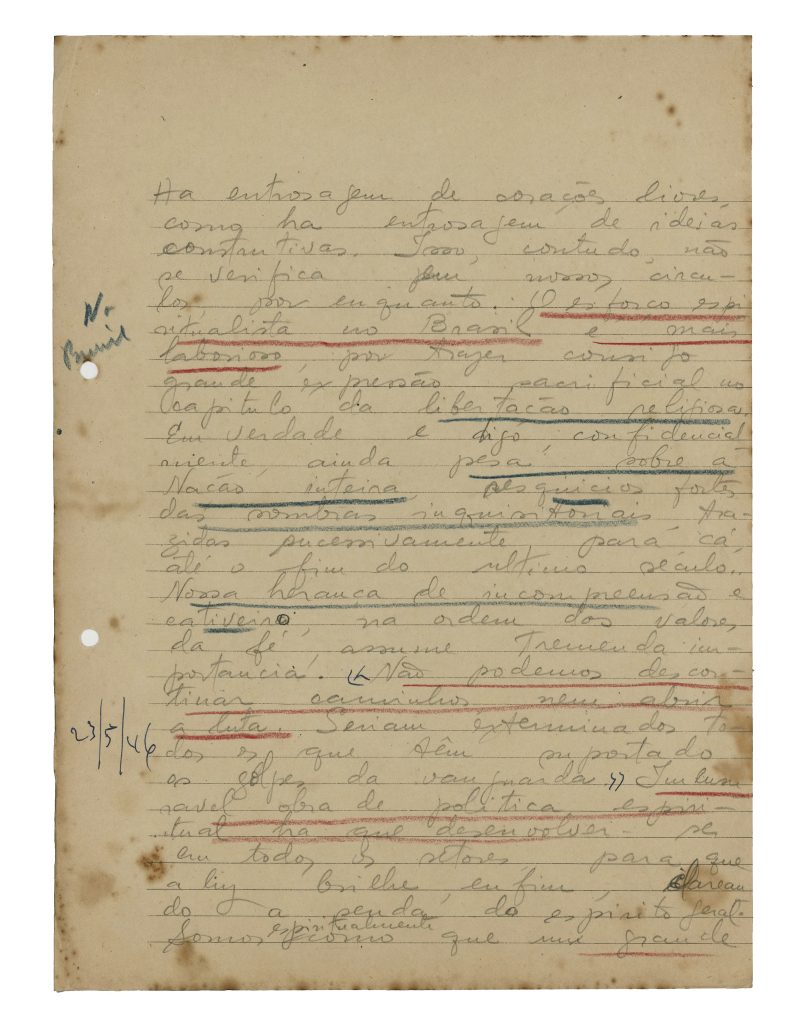 Ha entrosagem de corações livres,
como ha entrosagem de ideias
construtivas. Isso, contudo, não
se verifica em nossos circu-
los, por enquanto. O esforço espi
ritualista no Brasil é mais
laborioso, por trazer consigo
grande expressão sacrificial no
capitulo da libertação religiosa.
Em verdade e digo confidencial
mente, ainda pesa, sobre a
Nação inteira, resquicios fortes
das sombras inquisitoriais tra-
zidas sucessivamente para cá,
até o fim do ultimo século..
Nossa herança de incompreensão e
cativeiro, na ordem dos valores
da fé, assume tremenda im-
portancia. "Não podemos descor-
tinar caminhos nem abrir
a luta. Seriam exterminados to-
dos os que têm suportado
os golpes da vanguarda." Imensu
ravel obra de politica espiri-
tual ha que desenvolver-se
em todos os setores, para que
a luz brilhe, enfim, clarean
do a senda do espirito geral.
Somos espiritualmente como que um grande
N.
23/5/46